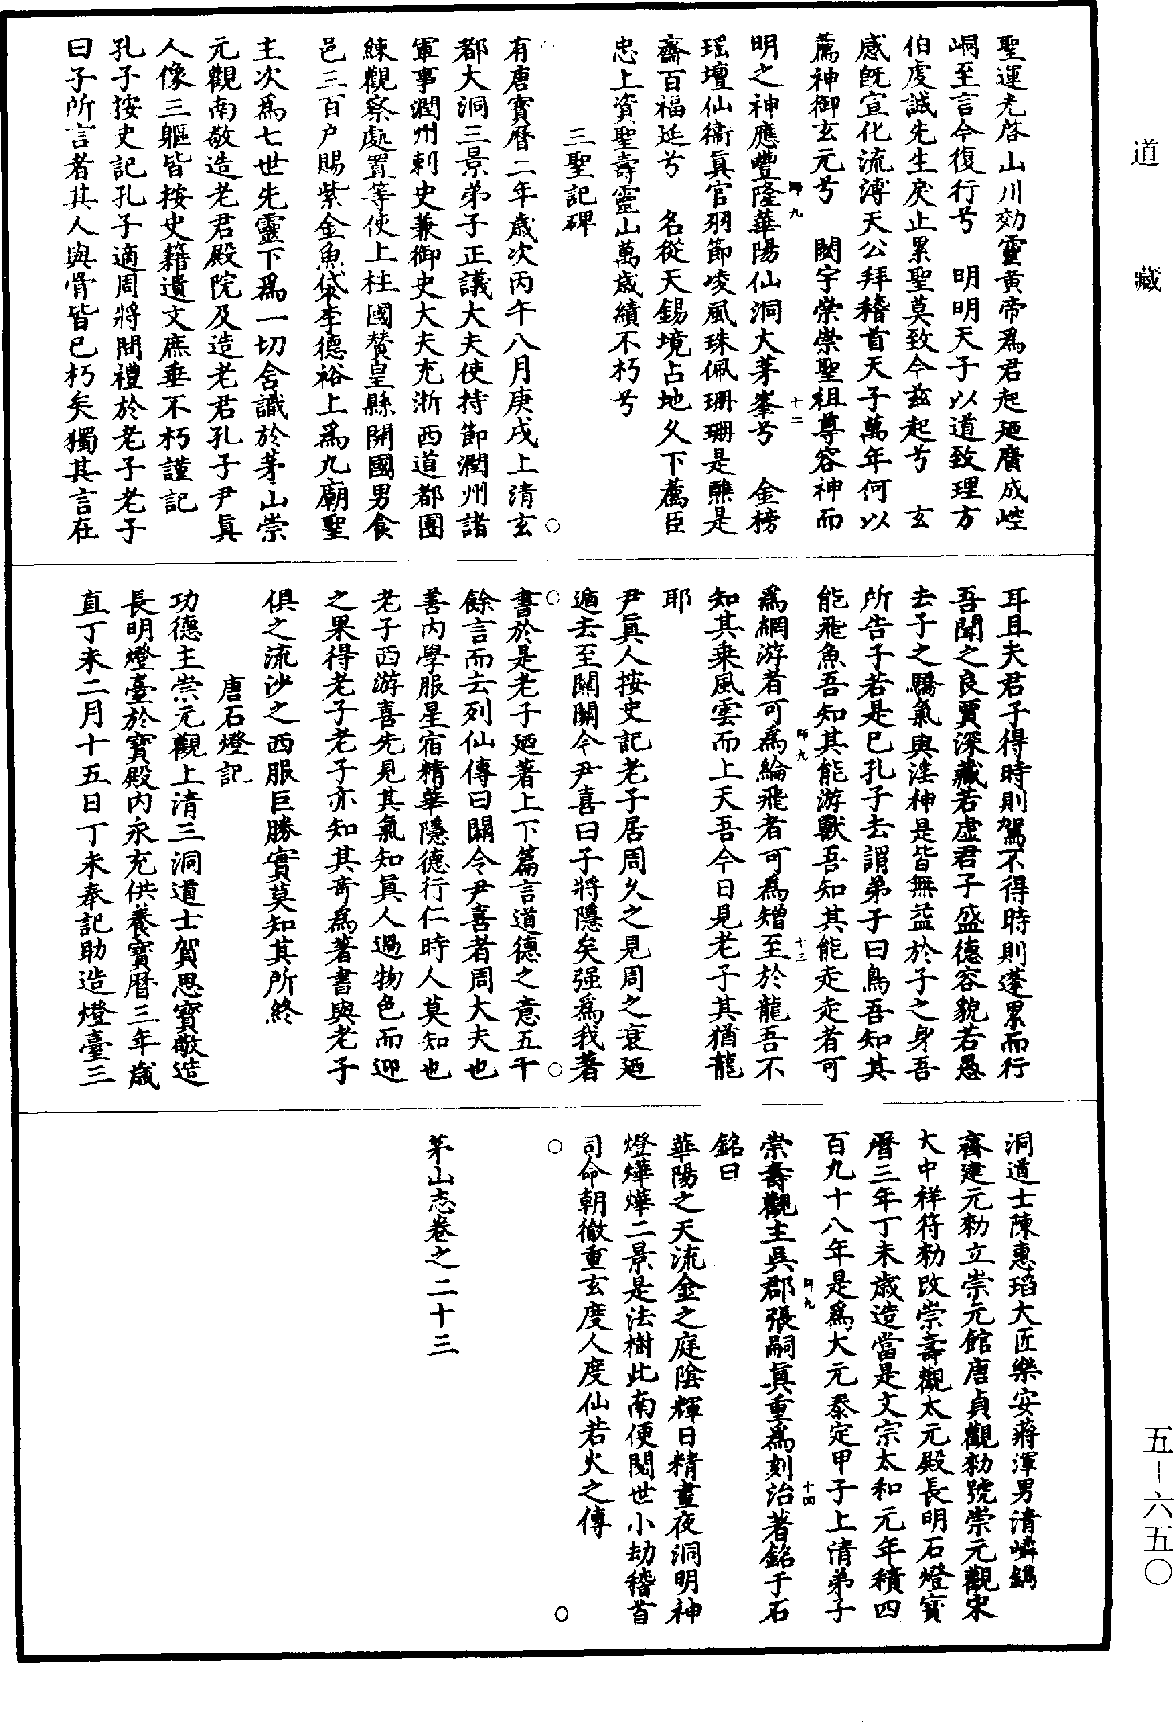 道藏
五-六五〇
聖運克啓山川効靈黃帝爲君起廼膺成崆
峒至言今復行兮　明明天子以道致理方
伯虔誠先生戾止累聖莫致今茲起兮　玄
感旣宣化流溥天公拜稽首天子萬年何以
薦神御玄元兮　閟宇崇崇聖祖尊容神而
師九
十二
明之神應豐隆華陽仙洞大茅峯兮　金榜
瑶壇仙衛眞官羽節凌風珠佩珊珊是醮是
齋百福延兮　名從天錫境占地久下薦臣
忠上資聖壽靈山萬歲績不朽兮
三聖記碑
有唐寳曆二年歲次丙午八月庚戌上清玄
都大洞三景弟子正議大夫使持節潤州諸
軍事潤州刺史兼御史大夫充浙西道都團
練觀察處置等使上柱國贊皇縣開國男食
邑三百户賜紫金魚袋李德裕上爲九廟聖
主次爲七世先靈下爲一切含識於茅山崇
元觀南敬造老君殿院及造老君孔子尹眞
人像三軀皆按史籍遺文庶垂不朽謹記
孔子按史記孔子適周將問禮於老子老子
曰子所言者其人與骨皆已朽矣獨其言在
耳且夫君子得時則駕不得時則蓬累而行
吾聞之良賈深藏若虛君子盛德容貌若愚
去子之驕氣與淫神是皆無益於子之身吾
所告子若是已孔子去謂弟子曰鳥吾知其
能飛魚吾知其能游獸吾知其能走走者可
師九
十三
爲網游者可爲綸飛者可爲矰至於龍吾不
知其乘風雲而上天吾今日見老子其猶龍
耶
尹眞人按史記老子居周久之見周之衰廼
遁去至關關令尹喜曰子將隱矣强爲我著
書於是老子廼著上下篇言道德之意五千
餘言而去列仙傳曰關令尹喜者周大夫也
善內學服星宿精華隱德行仁時人莫知也
老子西游喜先見其氣知眞人過物色而迎
之果得老子老子亦知其奇爲著書與老子
俱之流沙之西服巨勝實莫知其所終
唐石燈記
功德主崇元觀上清三洞道士賀思寳敬造
長明燈臺於寳殿內永充供養寳曆三年歲
直丁未二月十五日丁未奉記助造燈臺三
洞道士陳惠瑫大匠樂安蔣渾男清嶙鐫
齋建元勑立崇元館唐貞觀勑號崇元觀宋
大中祥符勑改崇壽觀太元殿長明石燈寳
曆三年丁未歲造當是文宗太和元年積四
百九十八年是爲大元泰定甲子上清弟子
師九
十四
崇壽觀主吳郡張嗣眞重爲刻治著銘于石
銘曰
華陽之天流金之庭陰輝日精晝夜洞明神
燈燁燁二景是法樹此南便閱世小劫稽首
司命朝徹重玄度人度仙若火之傳
茅山志卷之二十三